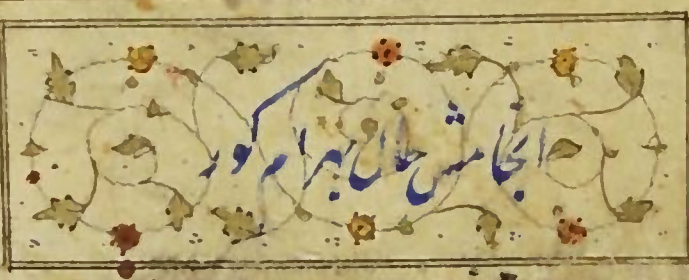 انجامش حال بهرام کور